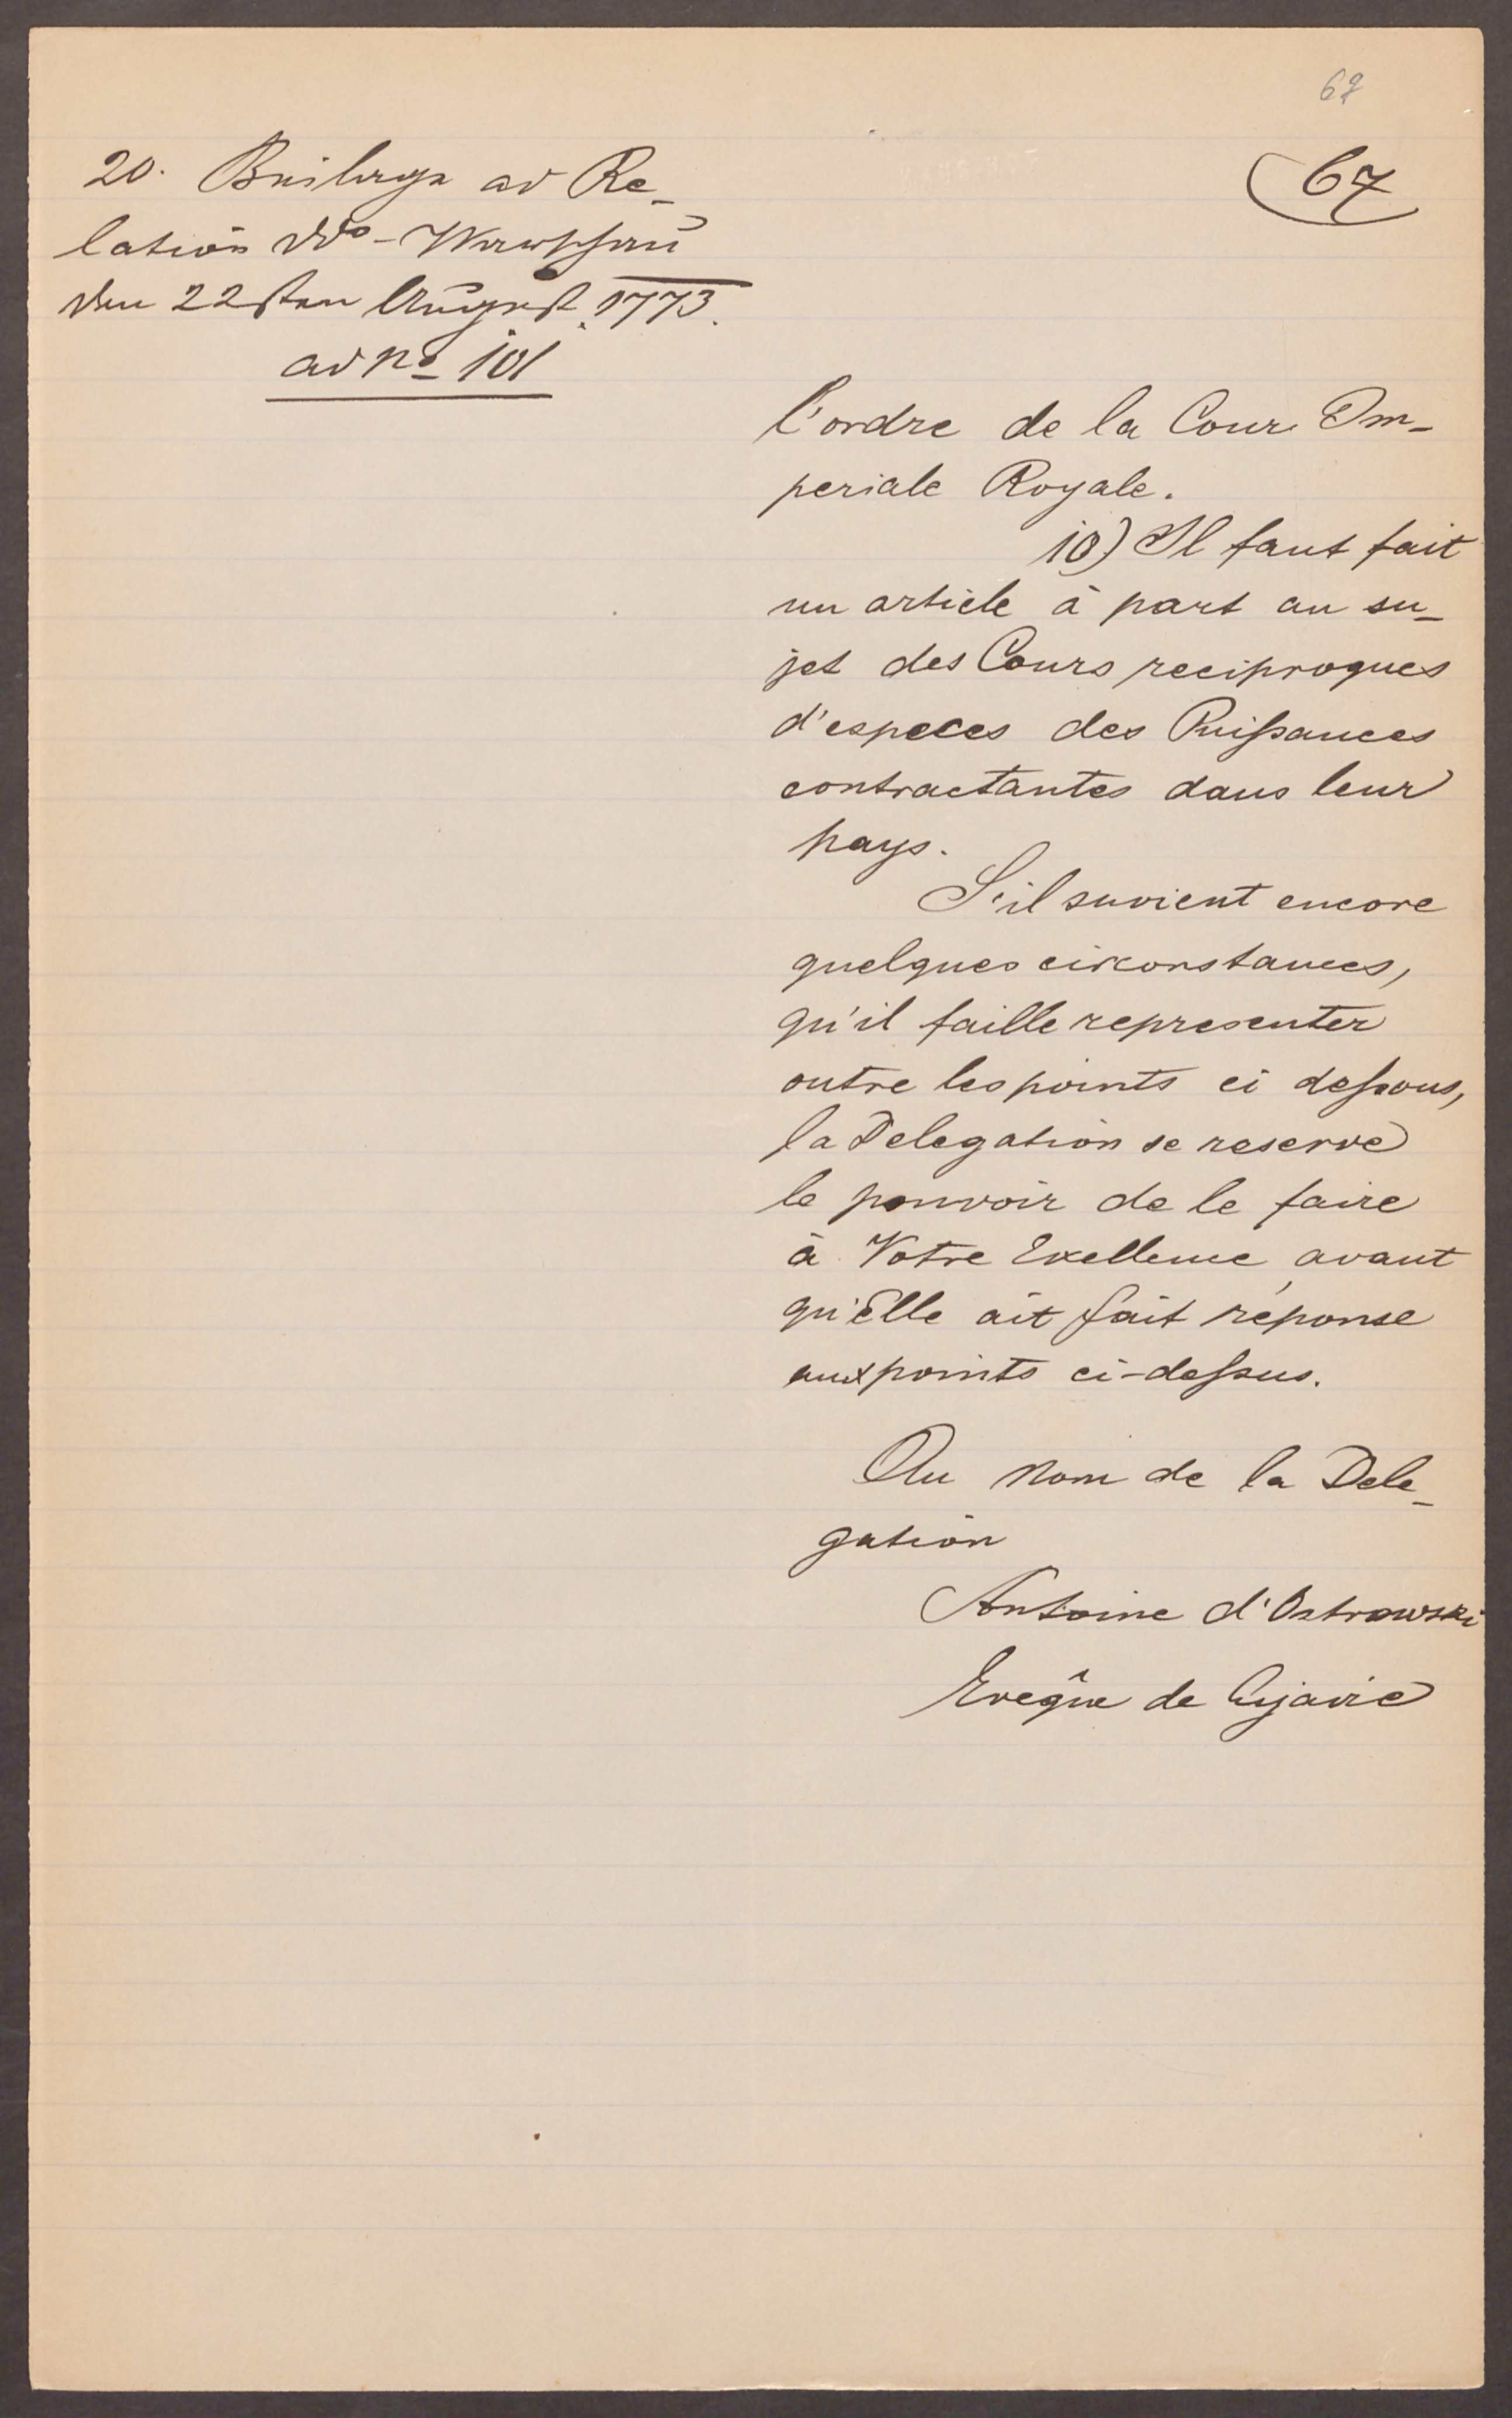 67
67
20. Beilage ad Re-
lation ddo - Warschau
den 22sten August 1773.
ad No 101
l'ordre de la Cour Im-
periale Royale.
10) Il faut fait
un article à part au su-
jet des Cours reciproques
d'especes des Puissances
contractantes dans leur
pays.
S'il suvient encore
quelques circonstances,
qu'il faille representer
outre les points ci dessous,
la Delegation se reserve
le pouvoir de le faire
à Votre Exellence avant
qu'Elle ait fait réponse
aux points ci-dessus.
Au Nom de la Dele-
gation
Antoine d'Ostrowski
Evêque de Cujavie